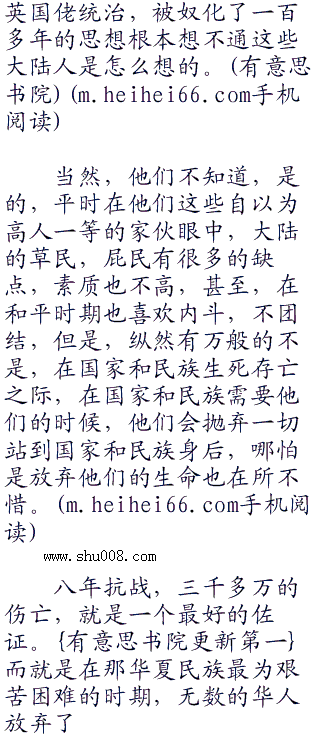 英国佬统治，被奴化了一百
多年的思想根本想不通这些
大陆人是怎么想的。(有意思
书院)(m.heihei66.com手机
阅读)
当然，他们不知道，是
的，平时在他们这些自以为
高人一等的家伙眼中，大陆
的草民，屁民有很多的缺
点，素质也不高，甚至，在
和平时期也喜欢内斗，不团
结，但是，纵然有万般的不
是，在国家和民族生死存亡
之际，在国家和民族需要他
们的时候，他们会抛弃一切
站到国家和民族身后，哪怕
是放弃他们的生命也在所不
惜。(m.heihei66.com手机阅
读)
www.shu008.com
八年抗战，三千多万的
伤亡，就是一个最好的佐
证。{有意思书院更新第一}
而就是在那华夏民族最为艰
苦困难的时期，无数的华人
放弃了